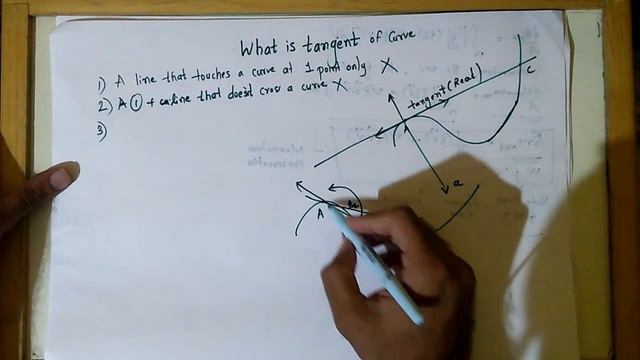 What is tangent of Curve
1) A line that touches a curve at 1 point only X
2) A ① + a line that doesn't cross a curve X
3)
tangent (Real)
C
A
a
A
B